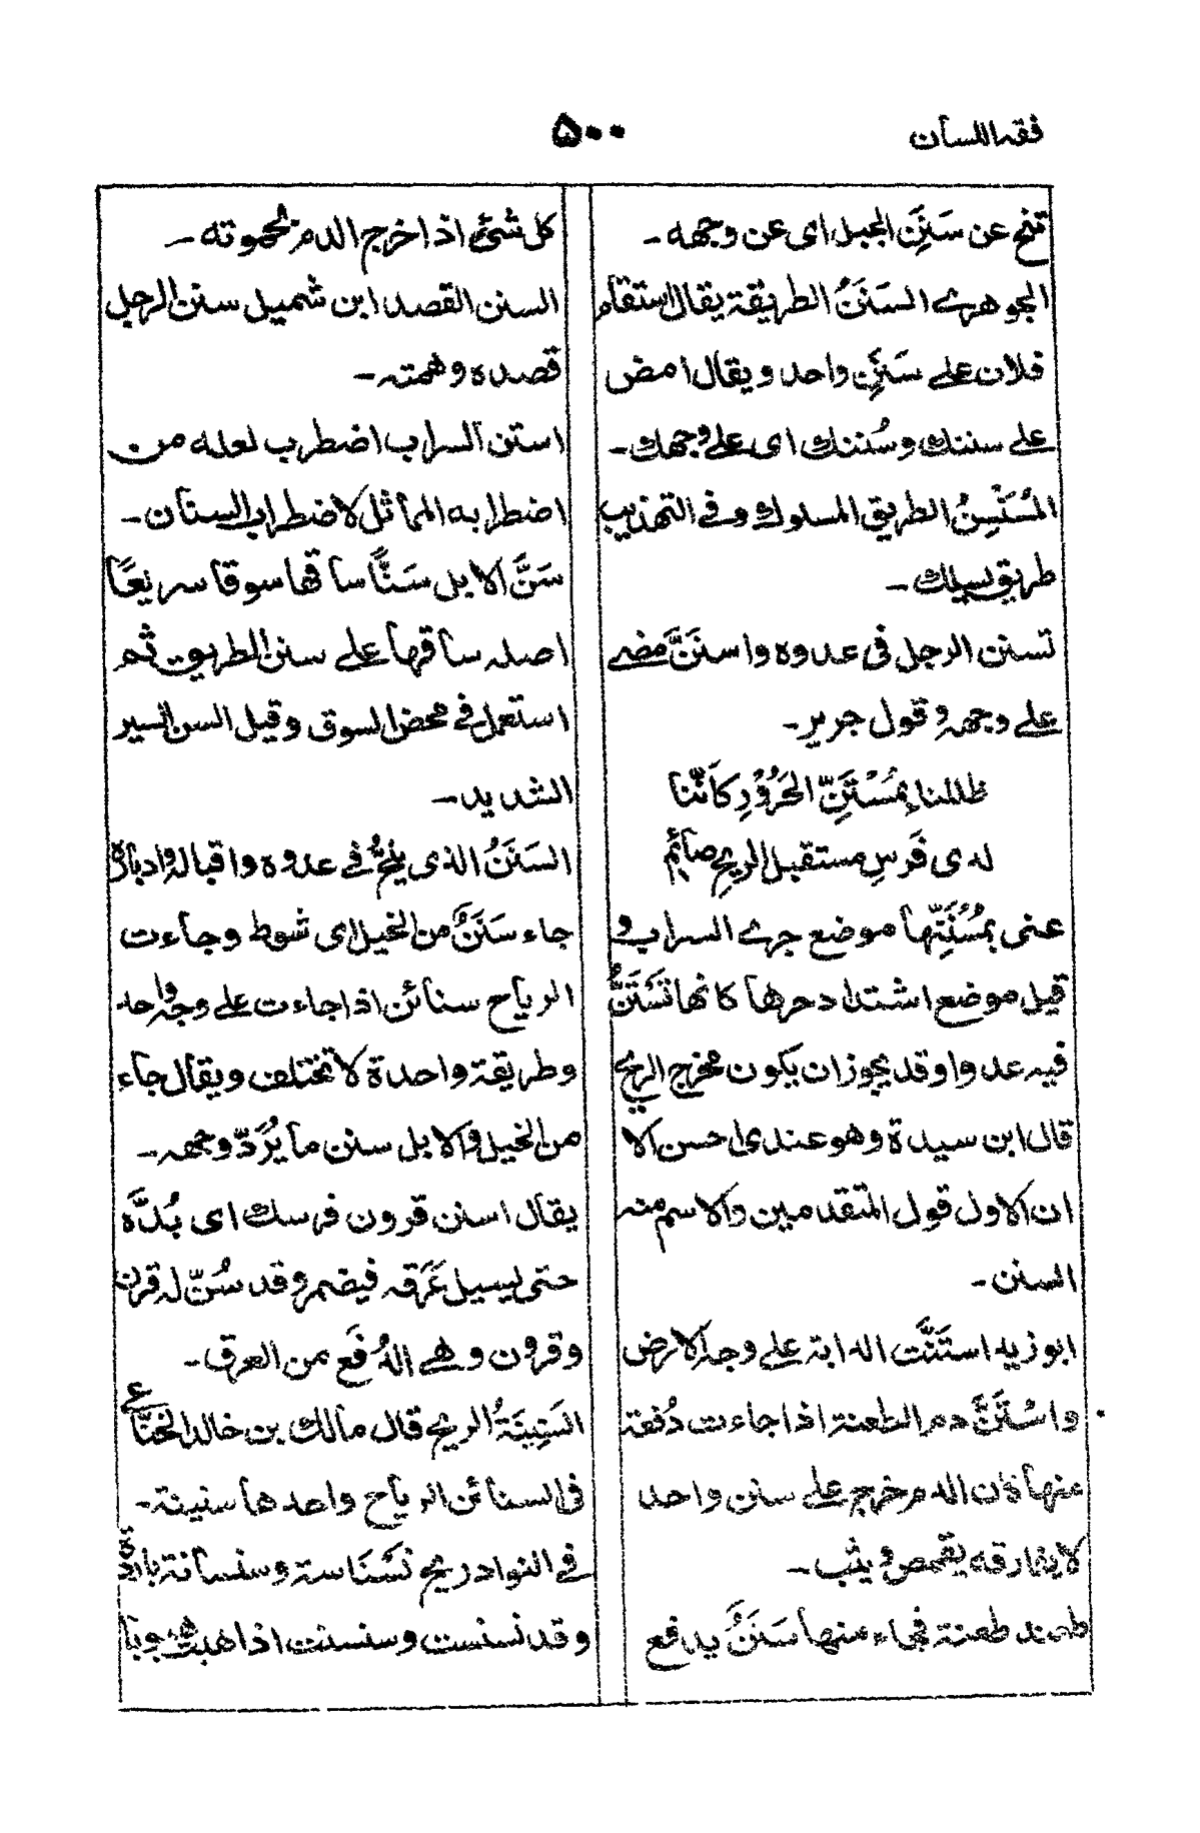 فقه اللسان
۵۰۰
تنح عن سَنَنِ الجبل ای عن وجهه ۔
الجوهرے السَنَنُ الطریقة یقال استقام
فلان علے سَنَنٍ واحد ویقال امض
علے سننك وسُننك ای علے وجهك ۔
المُسَنْسِنُ الطریق المسلوك وفے التهذیب
طریق یسلك ۔
تسنن الرجل فی عدوه واستنَّ مضے
علے وجهه وقول جریر ۔
ظللنا بِمُسْتَنِّ الحَرُوْرِ کَاَنَّنا
لدی فَرَسٍ مستقبل الریحِ صائِم
عنی بمُسْتَنِّها موضع جرے السراب و
قیل موضع اشتداد حرها کانها تَسْتَنُّ
فیه عدوا وقد یجوز ان یکون مخرج الریح
قال ابن سیدة وهو عندی احسن الا
ان الاول قول المتقدمین والاسم منه
السنن ۔
ابو زید استَنَّت الدابة علے وجه الارض
واسْتَنَّ دم الطعنة اذا جاءت دُفعة
منها فان الدم خرج علے سنن واحد
لا یفارقه یقمص ویثب ۔
طعنه طعنة فجاء منها سَنَنٌ یدفع
کل شئ اذا خرج الدم لحموته ۔
السنن القصد ابن شمیل سنن الرجل
قصده وهمته ۔
استن السراب اضطرب لعله من
اضطرابه المماثل لاضطراب السنان ۔
سَنَّ الابل سَنًّا ساقها سوقا سریعًا
اصله ساقها علے سنن الطریق ثم
استعمل فے محض السوق وقیل السن السیر
الشدید ۔
السَنَنُ الذی یلحُّ فے عدوه واقباله وادباره
جاء سَنَنٌ من الخیل ای شوط وجاءت
الریاح سنائن اذا جاءت علے وجه واحد
وطریقة واحدة لا تختلف ویقال جاء
من الخیل والابل سنن ما یُرَدّ وجهه ۔
یقال اسنن قرون فرسك ای بُدَّه
حتی یسیل عَرَقه فیضمر وقد سُنّ له قرن
وقرون وهے الدُفَع من العرق ۔
السَنِینَةُ الریح قال مالك بن خالد الخناعے
فی السنائن الریاح واحدها سنینة ۔
فے النوادر ریح نَسْنَاسة وسنسانة باردة
وقد نسنست وسنسنت اذا هبت هبوبا